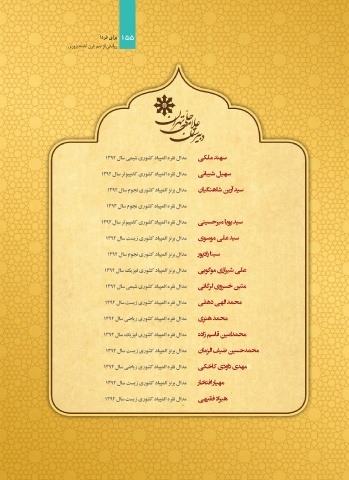 ۱۵۵
برای فردا
روایتی از نیم قرن اندیشه‌ورزی
دبیرستان علامه حلی تهران
سهند ملکی مدال نقره المپیاد کشوری شیمی سال ۱۳۹۲
سهیل شیبانی مدال نقره المپیاد کشوری کامپیوتر سال ۱۳۹۲
سید آرین شاهنگیان مدال برنز المپیاد کشوری نجوم سال ۱۳۹۲
مدال نقره المپیاد کشوری نجوم سال ۱۳۹۳
سید پویا میرحسینی مدال نقره المپیاد کشوری کامپیوتر سال ۱۳۹۲
سید علی موسوی مدال برنز المپیاد کشوری زیست سال ۱۳۹۲
سینا زادپور مدال برنز المپیاد کشوری نجوم سال ۱۳۹۲
علی شیرازی موگویی مدال نقره المپیاد کشوری فیزیک سال ۱۳۹۲
متین خسروی ایرگانی مدال نقره المپیاد کشوری شیمی سال ۱۳۹۲
محمد الهی دهقی مدال نقره المپیاد کشوری زیست سال ۱۳۹۲
محمد هنری مدال نقره المپیاد کشوری ریاضی سال ۱۳۹۲
محمدامین قاسم زاده مدال نقره المپیاد کشوری فیزیک سال ۱۳۹۲
محمدحسین ضیف الزمان مدال برنز المپیاد کشوری زیست سال ۱۳۹۲
مهدی داودی کاشکی مدال نقره المپیاد کشوری ریاضی سال ۱۳۹۲
مهیار افتخار مدال برنز المپیاد کشوری زیست سال ۱۳۹۲
هیراد فقیهی مدال نقره المپیاد کشوری زیست سال ۱۳۹۲